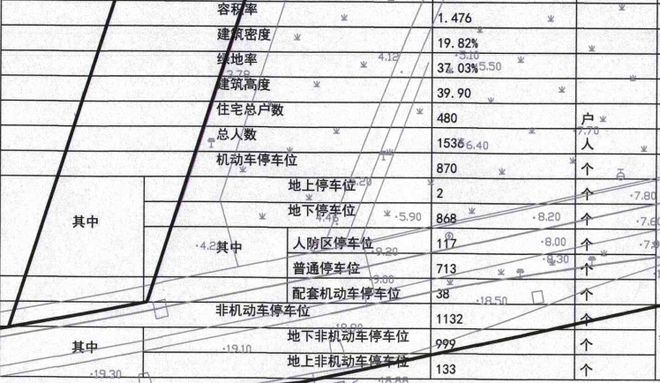 容积率 1.476
建筑密度 19.82%
绿地率 37.03%
建筑高度 39.90
住宅总户数 480 户
总人数 1536 人
机动车停车位 870 个
地上停车位 2 个
其中 地下停车位 868 个
其中 人防区停车位 117 个
普通停车位 713 个
配套机动车停车位 38 个
非机动车停车位 1132 个
其中 地下非机动车停车位 999 个
地上非机动车停车位 133 个
4.12
5.10
5.50
3.78
6.40
7.70
5.90
8.20
7.80
8.00
9.20
8.30
18.50
19.10
19.30